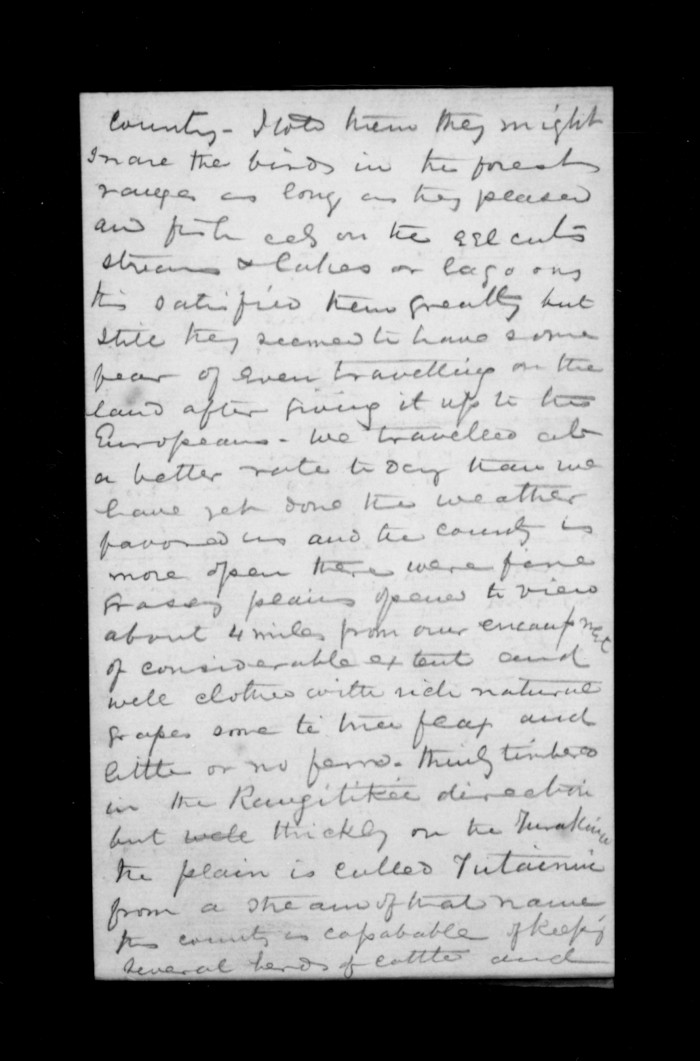 country - I told them they might
snare the birds in the forest
ranges as long as they pleased
and fish eels on the eel cuts
streams & lakes or lagoons
this satisfied them greatly but
still they seemed to have some
fear of even travelling on the
land after giving it up to the
Europeans - We travelled at
a better rate to day than we
have yet done the weather
favored us and the country is
more open there were fine
grassy plains opened to view
about 4 miles from our encampmet
of considerable extent and
well clothed with rich natural
grapes some ti tree flax and
little or no fern - thinly timbered
in the Rangitikie direction
but well thickly on the Turakina
the plain is called Tutaenui
from a stream of that name
this country is capabable of keepg
several herds of cattle and